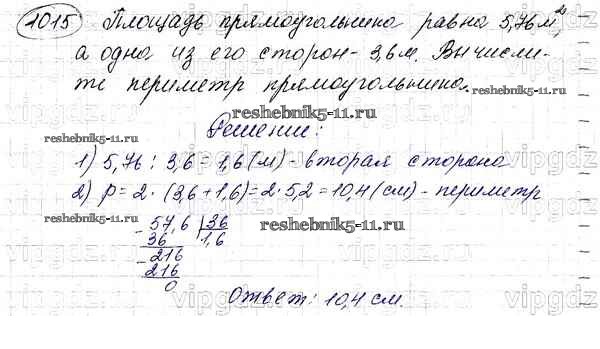 1015 Площадь прямоугольника равна 5,76 м²,
а одна из его сторон - 3,6 м. Вычисли-
те периметр прямоугольника.
reshebnik5-11.ru
reshebnik5-11.ru
Решение:
reshebnik5-11.ru
1) 5,76 : 3,6 = 1,6 (м) - вторая сторона
2) P = 2 · (3,6 + 1,6) = 2 · 5,2 = 10,4 (см) - периметр
reshebnik5-11.ru
- 57,6 | 36
36 1,6
reshebnik5-11.ru
- 216
216
0
Ответ: 10,4 см.
vipgdz.ru vipgdz.ru vipgdz.ru vipgdz.ru